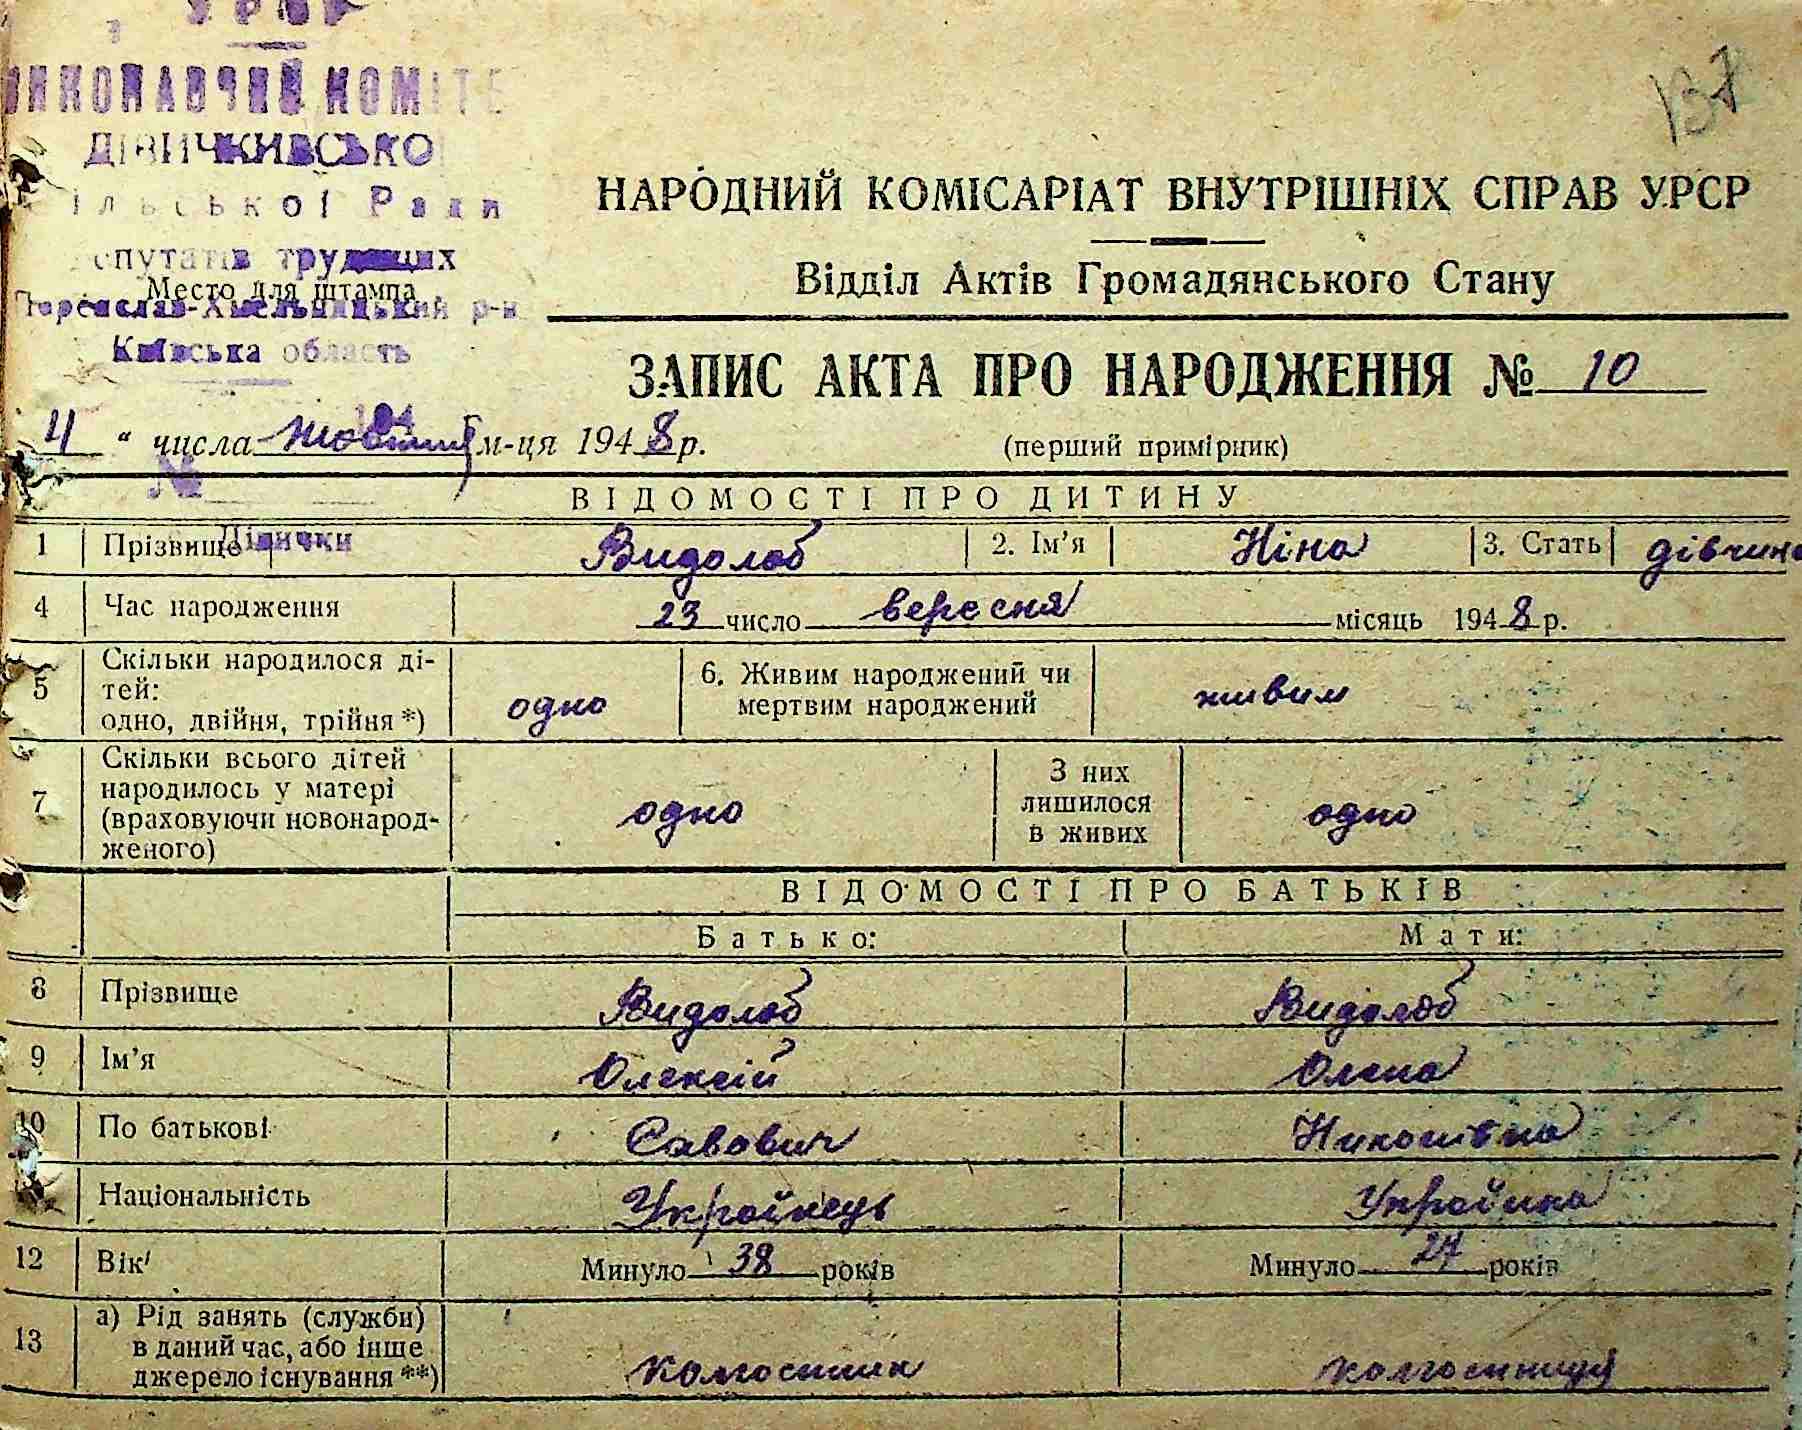 УРСР
ВИКОНАВЧИЙ КОМІТЕ
ДІВИЧКИВСЬКО
ільської Ради
епутатів трудящих
Место для штампа
Переяслав-Хмельницький р-н
Київська область
194
№
Дівички
137
НАРОДНИЙ КОМІСАРІАТ ВНУТРІШНІХ СПРАВ УРСР
Відділ Актів Громадянського Стану
ЗАПИС АКТА ПРО НАРОДЖЕННЯ № 10
4 " числа жовтня м-ця 1948 р.
(перший примірник)
ВІДОМОСТІ ПРО ДИТИНУ
1 Прізвище Видолоб 2. Ім'я Ніна 3. Стать дівчина
4 Час народження 23 число вересня місяць 1948 р.
5 Скільки народилося ді-
тей:
одно, двійня, трійня *) одно 6. Живим народжений чи
мертвим народжений живим
7 Скільки всього дітей
народилось у матері
(враховуючи новонарод-
женого) одно З них
лишилося
в живих одно
ВІДОМОСТІ ПРО БАТЬКІВ
Батько: Мати:
8 Прізвище Видолоб Видолоб
9 Ім'я Олексій Олена
10 По батькові Савович
Національність Українець Українка
12 Вік Минуло 38 років Минуло 27 років
13 а) Рід занять (служби)
в даний час, або інше
джерело існування **) колгоспник колгоспниця